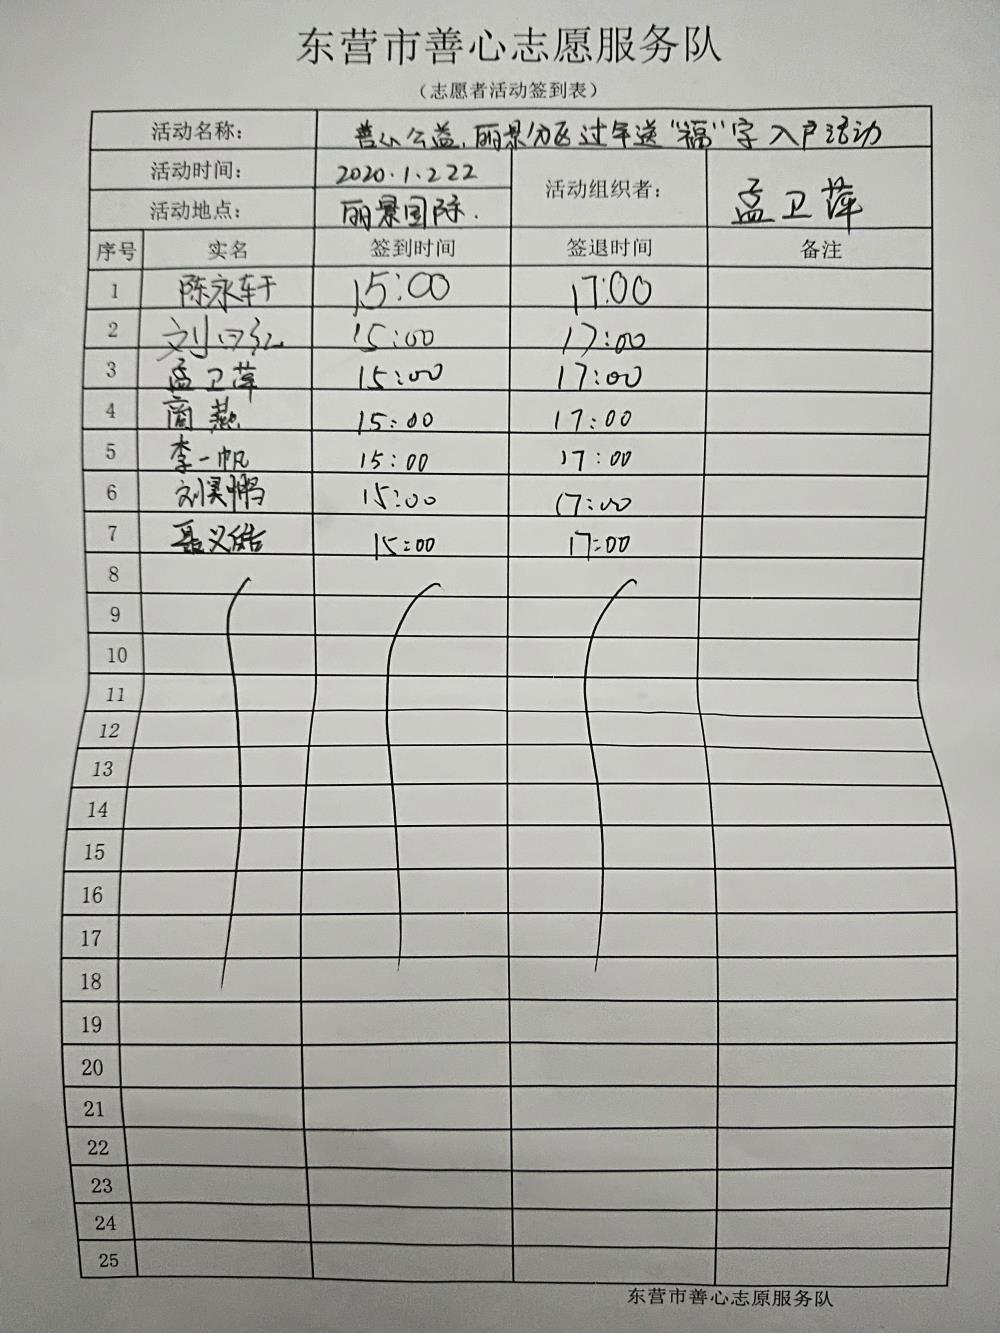 东营市善心志愿服务队
（志愿者活动签到表）
活动名称： 善心公益，丽景分区过年送“福”字入户活动
活动时间： 2020.1.222 活动组织者： 孟卫萍
活动地点： 丽景国际.
序号 实名 签到时间 签退时间 备注
1 陈永轩 15:00 17:00
2 刘 15:00 17:00
3 孟卫萍 15:00 17:00
4 商燕 15:00 17:00
5 李一帆 15:00 17:00
6 刘昊鹏 15:00 17:00
7 聂义 15:00 17:00
8
9
10
11
12
13
14
15
16
17
18
19
20
21
22
23
24
25
东营市善心志原服务队